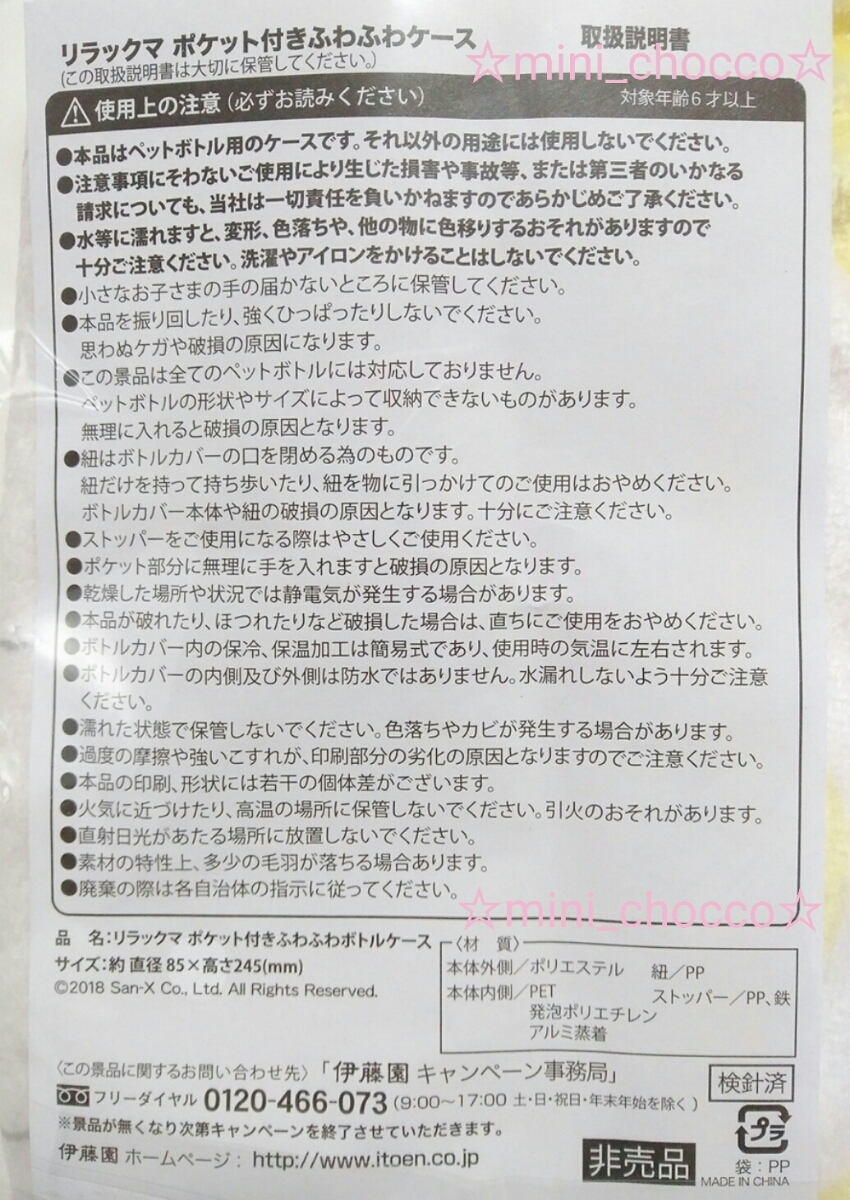 リラックマ ポケット付きふわふわケース 取扱説明書
(この取扱説明書は大切に保管してください。)
☆mini_chocco☆
⚠ 使用上の注意 (必ずお読みください) 対象年齢6才以上
●本品はペットボトル用のケースです。それ以外の用途には使用しないでください。
●注意事項にそわないご使用により生じた損害や事故等、または第三者のいかなる
請求についても、当社は一切責任を負いかねますのであらかじめご了承ください。
●水等に濡れますと、変形、色落ちや、他の物に色移りするおそれがありますので
十分ご注意ください。洗濯やアイロンをかけることはしないでください。
●小さなお子さまの手の届かないところに保管してください。
●本品を振り回したり、強くひっぱったりしないでください。
思わぬケガや破損の原因になります。
●この景品は全てのペットボトルには対応しておりません。
ペットボトルの形状やサイズによって収納できないものがあります。
無理に入れると破損の原因となります。
●紐はボトルカバーの口を閉める為のものです。
紐だけを持って持ち歩いたり、紐を物に引っかけてのご使用はおやめください。
ボトルカバー本体や紐の破損の原因となります。十分にご注意ください。
●ストッパーをご使用になる際はやさしくご使用ください。
●ポケット部分に無理に手を入れますと破損の原因となります。
●乾燥した場所や状況では静電気が発生する場合があります。
●本品が破れたり、ほつれたりなど破損した場合は、直ちにご使用をおやめください。
●ボトルカバー内の保冷、保温加工は簡易式であり、使用時の気温に左右されます。
●ボトルカバーの内側及び外側は防水ではありません。水漏れしないよう十分ご注意
ください。
●濡れた状態で保管しないでください。色落ちやカビが発生する場合があります。
●過度の摩擦や強いこすれが、印刷部分の劣化の原因となりますのでご注意ください。
●本品の印刷、形状には若干の個体差がございます。
●火気に近づけたり、高温の場所に保管しないでください。引火のおそれがあります。
●直射日光があたる場所に放置しないでください。
●素材の特性上、多少の毛羽が落ちる場合あります。
●廃棄の際は各自治体の指示に従ってください。
☆mini_chocco☆
品 名:リラックマ ポケット付きふわふわボトルケース
サイズ:約 直径 85×高さ245(mm)
©2018 San-X Co., Ltd. All Rights Reserved.
〈材 質〉
本体外側／ポリエステル 紐／PP
本体内側／PET ストッパー／PP、鉄
発泡ポリエチレン
アルミ蒸着
〈この景品に関するお問い合わせ先〉「伊藤園 キャンペーン事務局」
フリーダイヤル 0120-466-073 (9:00〜17:00 土・日・祝日・年末年始を除く)
※景品が無くなり次第キャンペーンを終了させていただきます。
伊藤園 ホームページ : http://www.itoen.co.jp
検針済
非売品
プラ
袋:PP
MADE IN CHINA